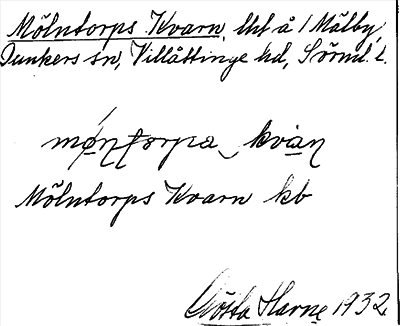 Mölntorps Kvarn, lht å 1 Mälby,
Dunkers sn, Villåttinge hd, Sörml. l.
mǿn̨t̨orpa‿kvàn̨
Mölntorps Kvarn kb
Gösta Harne 1932.